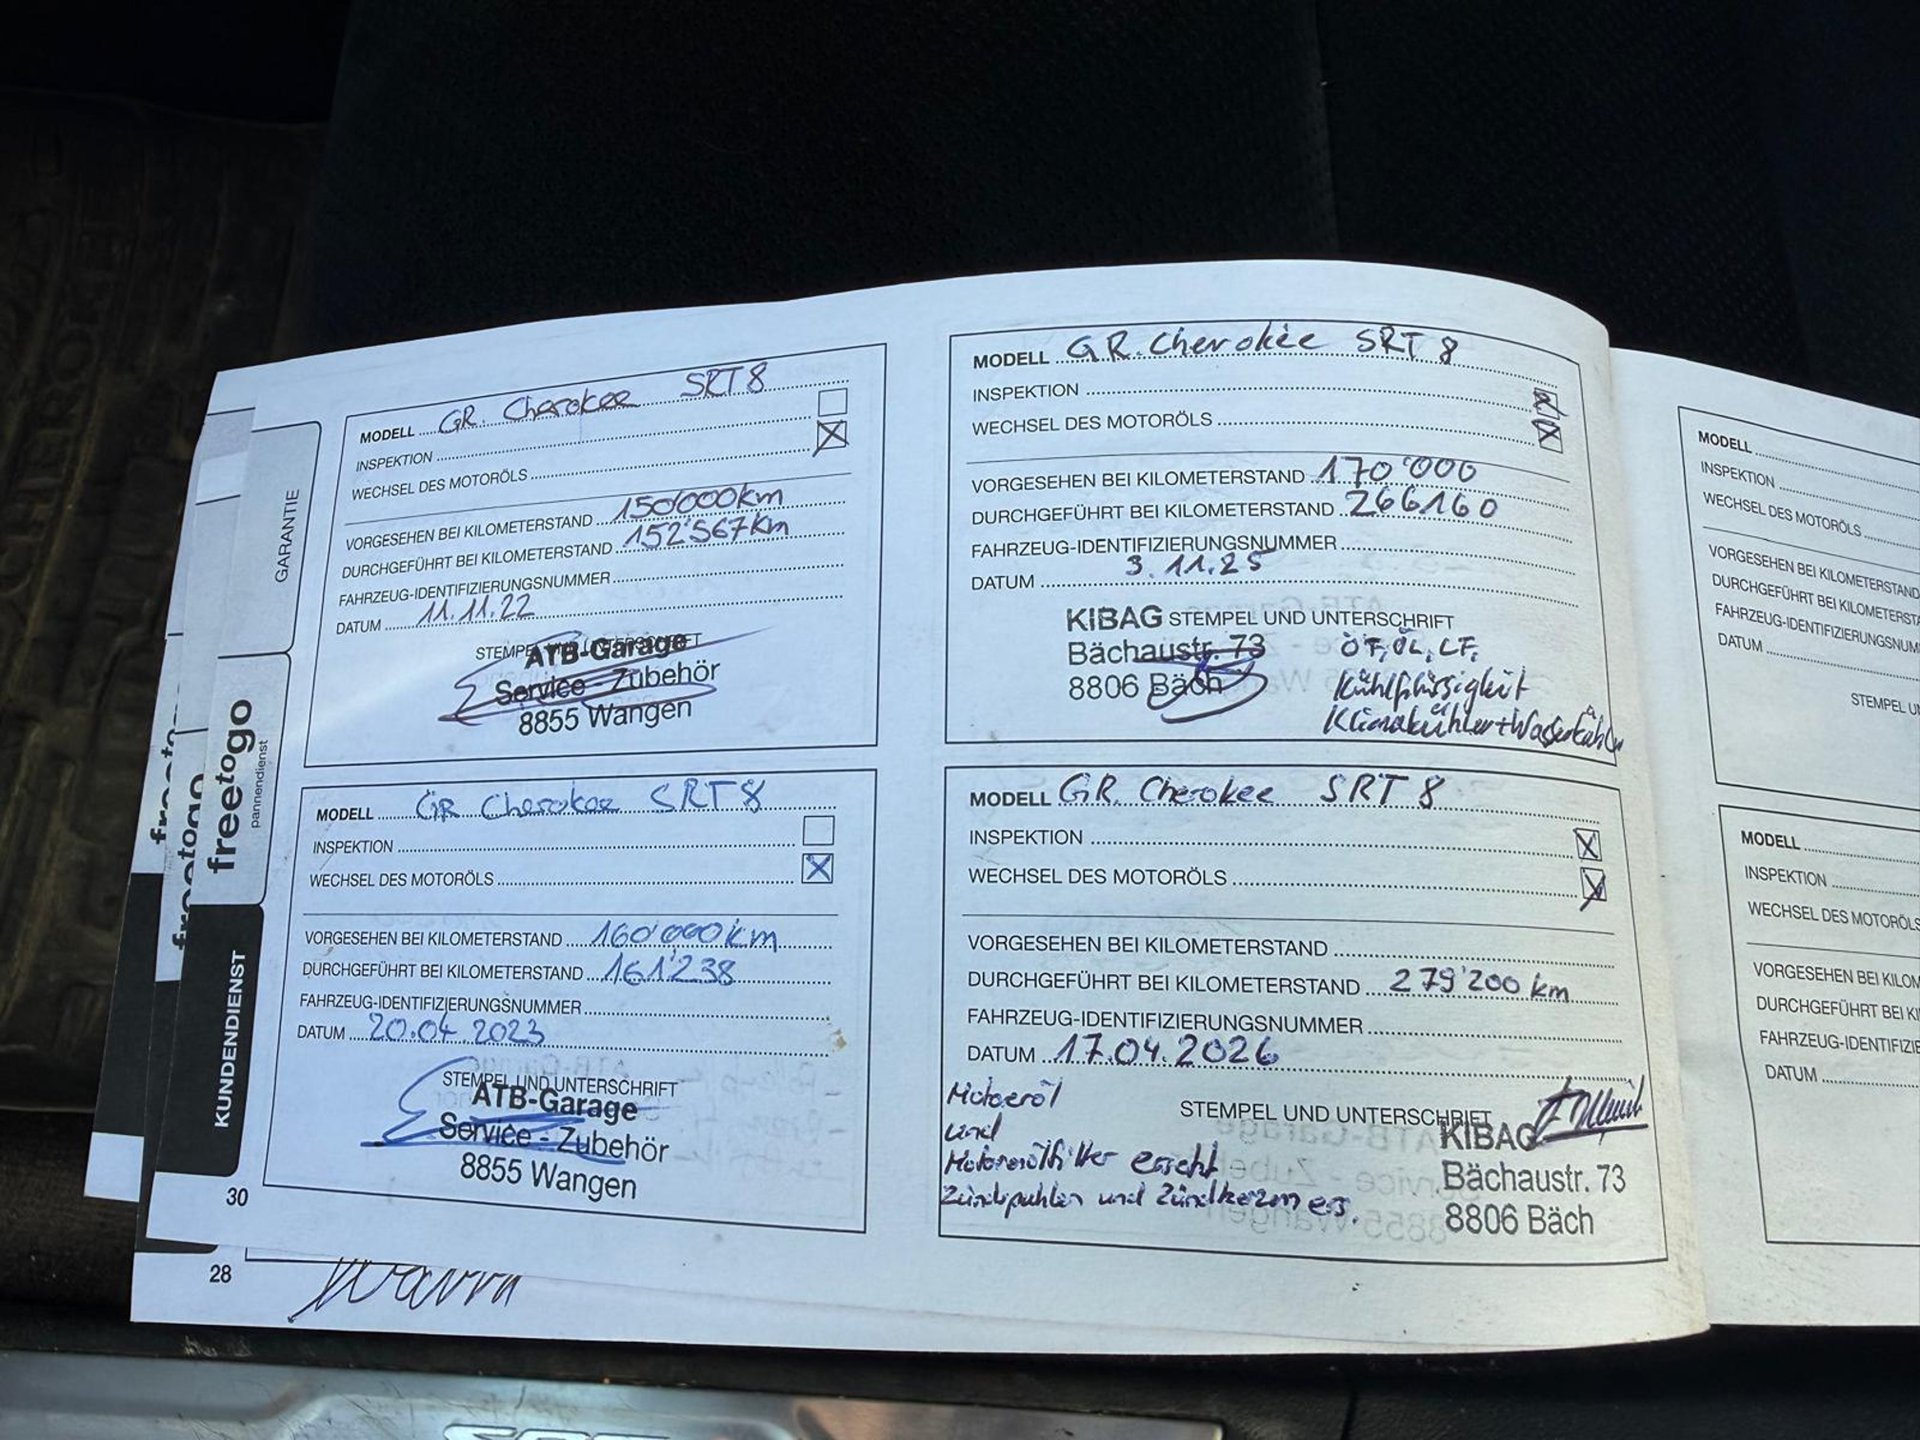 MODELL GR. Cherokee SRT 8
INSPEKTION
WECHSEL DES MOTORÖLS
VORGESEHEN BEI KILOMETERSTAND 150'000km
DURCHGEFÜHRT BEI KILOMETERSTAND 152'567km
FAHRZEUG-IDENTIFIZIERUNGSNUMMER
DATUM 11.11.22
STEMPEL UND UNTERSCHRIFT
ATB-Garage
Service - Zubehör
8855 Wangen
MODELL GR Cherokee SRT 8
INSPEKTION
WECHSEL DES MOTORÖLS
VORGESEHEN BEI KILOMETERSTAND 160'000km
DURCHGEFÜHRT BEI KILOMETERSTAND 161'238
FAHRZEUG-IDENTIFIZIERUNGSNUMMER
DATUM 20.04.2023
STEMPEL UND UNTERSCHRIFT
ATB-Garage
Service - Zubehör
8855 Wangen
MODELL GR. Cherokee SRT 8
INSPEKTION
WECHSEL DES MOTORÖLS
VORGESEHEN BEI KILOMETERSTAND 170'000
DURCHGEFÜHRT BEI KILOMETERSTAND 266160
FAHRZEUG-IDENTIFIZIERUNGSNUMMER
DATUM 3.11.25
KIBAG STEMPEL UND UNTERSCHRIFT
Bächaustr. 73 ÖF, ÖL, LF,
8806 Bäch Kühlflüssigkeit
Klimakühler+Wasserkühler
MODELL GR. Cherokee SRT 8
INSPEKTION
WECHSEL DES MOTORÖLS
VORGESEHEN BEI KILOMETERSTAND
DURCHGEFÜHRT BEI KILOMETERSTAND 279'200 km
FAHRZEUG-IDENTIFIZIERUNGSNUMMER
DATUM 17.04.2026
STEMPEL UND UNTERSCHRIFT
Motoröl
und
Motorenölfilter ersetzt
Zündspuhlen und Zündkerzen ers.
KIBAG
Bächaustr. 73
8806 Bäch
MODELL
INSPEKTION
WECHSEL DES MOTORÖLS
VORGESEHEN BEI KILOMETERSTAND
DURCHGEFÜHRT BEI KILOMETERSTA
FAHRZEUG-IDENTIFIZIERUNGSNUM
DATUM
STEMPEL U
MODELL
INSPEKTION
WECHSEL DES MOTORÖLS
VORGESEHEN BEI KILOM
DURCHGEFÜHRT BEI KI
FAHRZEUG-IDENTIFIZIE
DATUM
GARANTIE
freetogo
pannendienst
freetogo
KUNDENDIENST
30
28